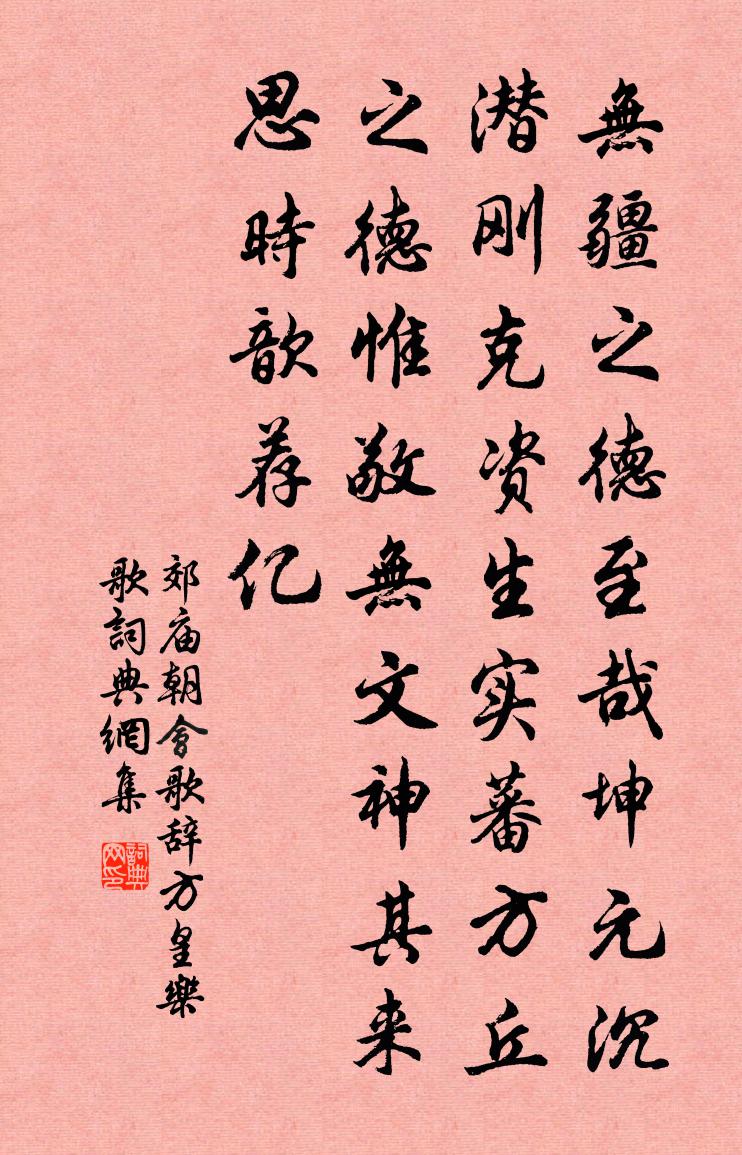 無疆之德至哉坤元沉
潜刚克资生实蕃方丘
之德惟敬無文神其来
思時歆荐亿
郊庙朝会歌辞方皇樂
歌詞典網集
詞典网印